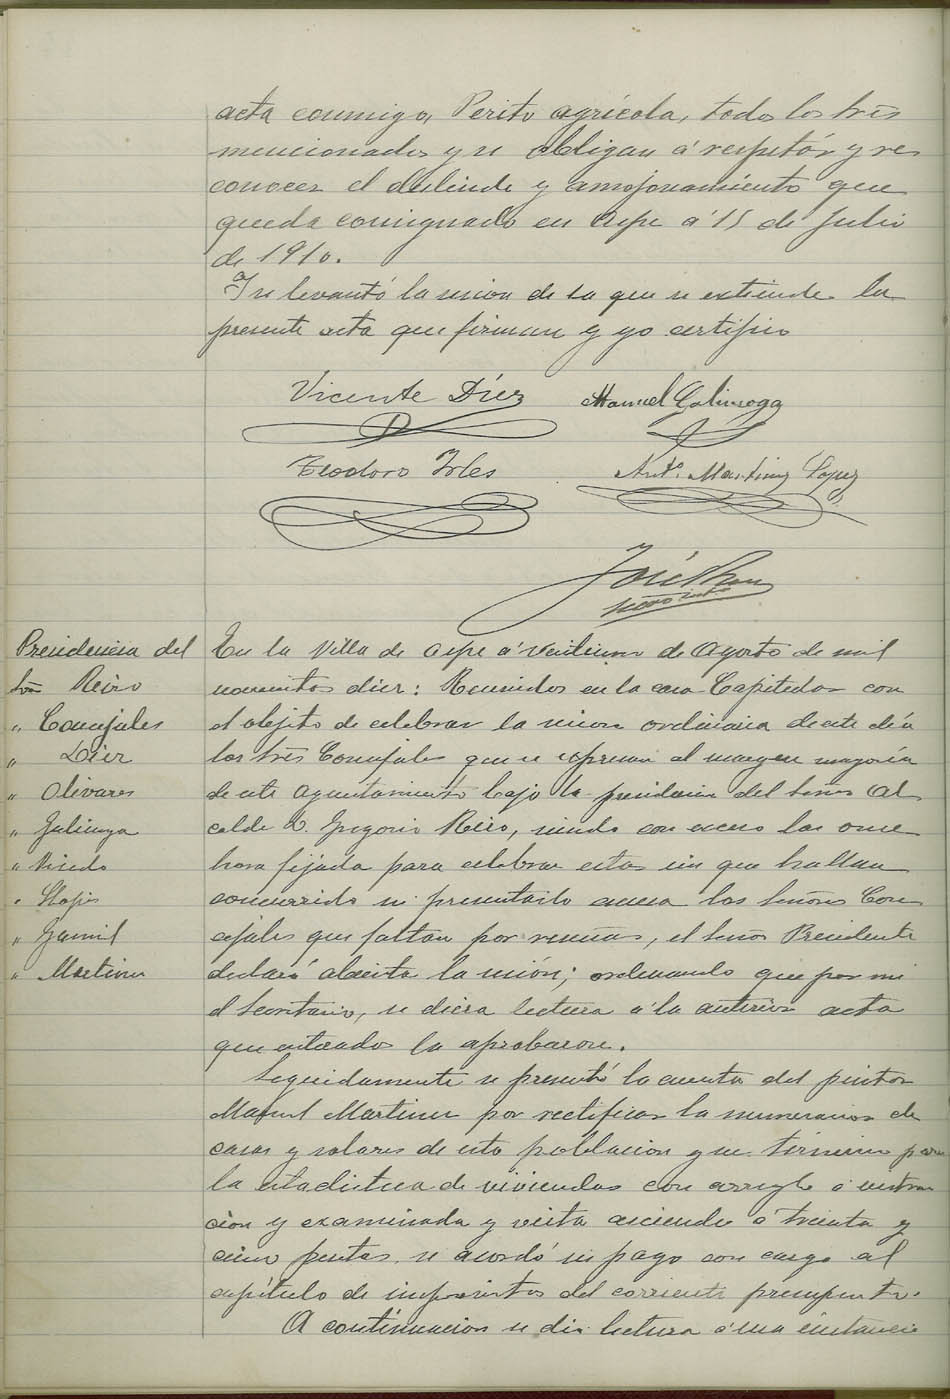 acta conmigo, Perito agrícola, todos los tres
mencionados y se obligan á respetár y re
conocer el deslinde y amojonamiento que
queda consignado en Aspe á 15 de Julio
de 1910.
Y se levantó la sesion de la que se extiende la
presente acta que firman y yo certifico
Vicente Díez
Manuel Galinsoga
Teodoro Irles
Antº. Martinez Lopez
José
Presidencia del
Sor. Reiro
" Concejales
" Díez
" Olivares
" Galinsoga
"
"
"
" Martinez
En la Villa de Aspe á veintiuno de Agosto de mil
novecientos diez: Reunidos en la casa Capitular con
el objeto de celebrar la sesion ordinaria de este día
los tres Concejales que se expresan al margen mayoría
de este Ayuntamiento bajo la presidencia del Señor Al
calde D. Gregorio Reiro, siendo con exceso las once
hora fijada para celebrar estas sin que hallan
concurrido ni presentado escusa los Señores Con
cejales que faltan por reunirse, el Señor Presidente
declaró abierta la sesión; ordenando que por mi
el Secretario, se diera lectura á la anterior acta
que enterados la aprobaron.
Seguidamente se presentó la cuenta del pintor
Manuel Martinez por rectificar la numeracion de
casas y solares de esta poblacion y su termino para
la estadistica de viviendas con arreglo á instruc
cion y examinada y vista asciende á treinta y
cinco pesetas, se acordó su pago con cargo al
capítulo de imprevistos del corriente presupuesto.
A continuacion se dio lectura á una instancia